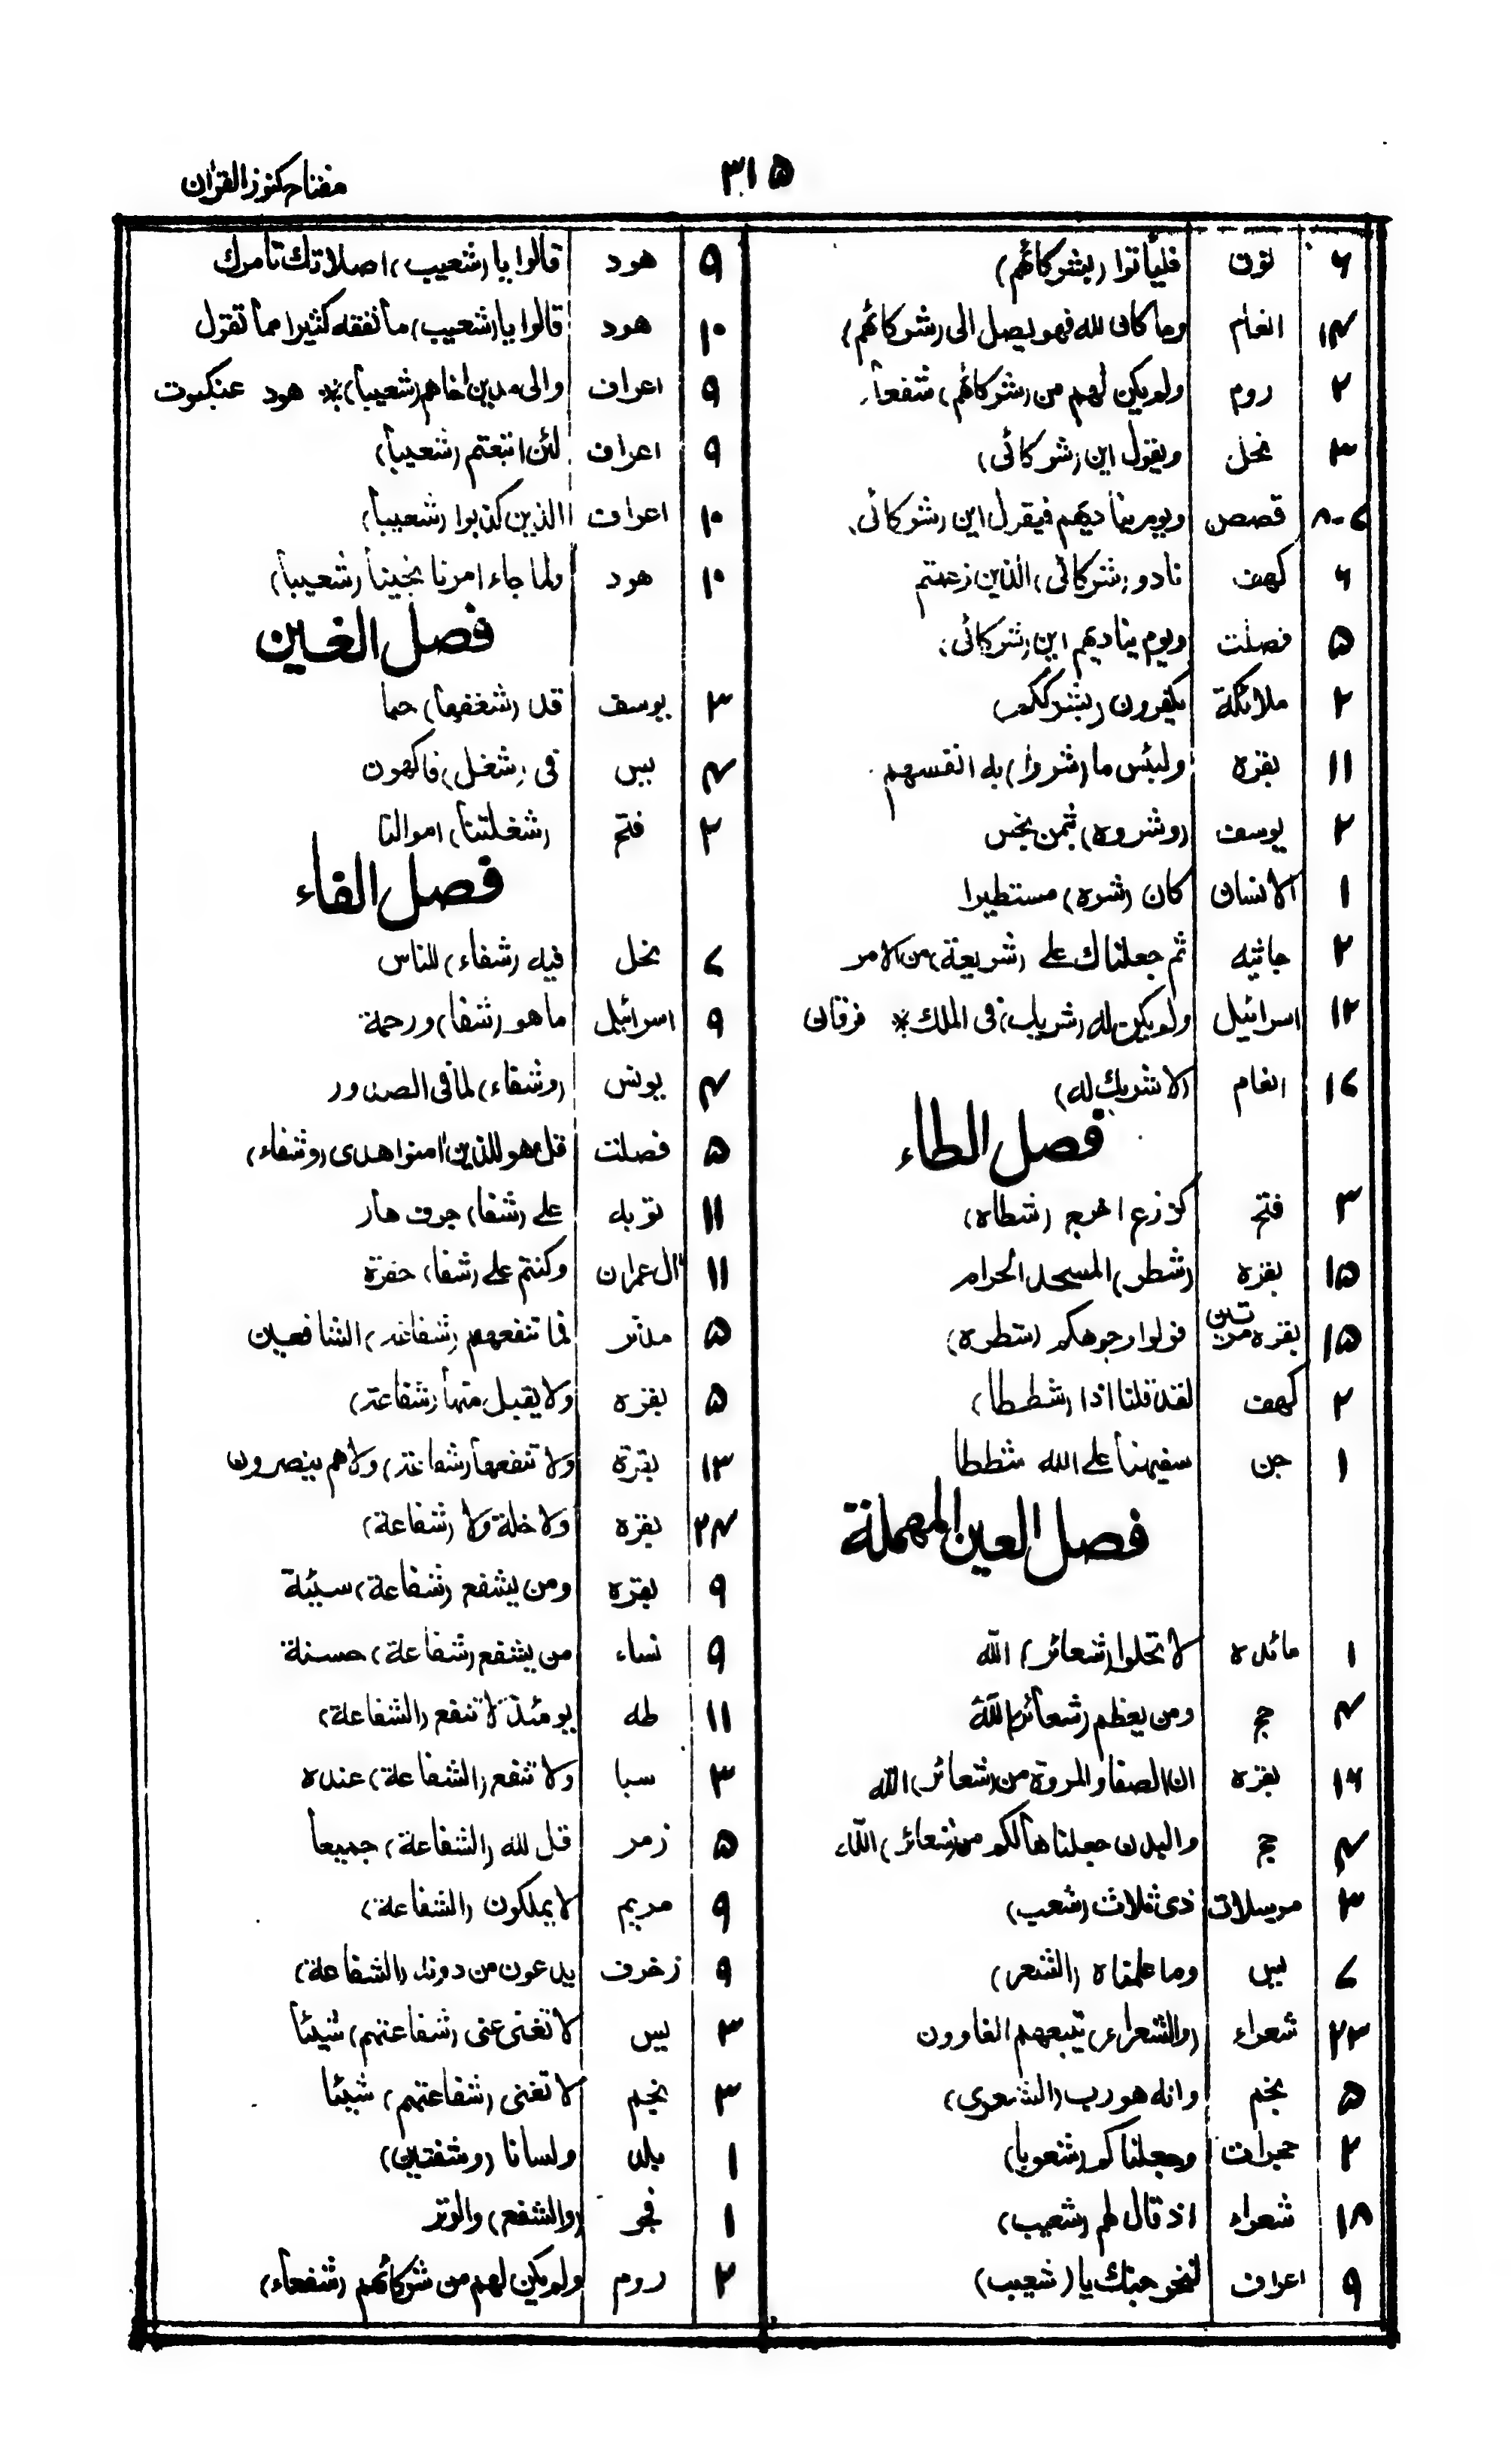 ۳۱۵
مفتاح كنوز القرآن
۶ نون فليأتوا (بشركائهم)
۱۴ انعام وما كان لله فهو يصل الى (شركائهم)
۲ روم ولم يكن لهم من (شركائهم) شفعاء
۳ نحل ويقول اين (شركائى)
۷-۸ قصص ويوم يناديهم فيقول اين (شركائى)
۶ كهف نادو (شركائى) الذين زعمتم
۵ فصلت ويوم يناديهم اين (شركائى)
۲ ملائكة يكفرون (بشرككم)
۱۱ بقره ولبئس ما (شروا) به انفسهم
۲ يوسف (وشروه) بثمن بخس
۱ الانسان كان (شره) مستطيرا
۲ جاثيه ثم جعلناك على (شريعة) من الامر
۱۲ اسرائيل ولم يكن له (شريك) فى الملك * فرقان
۱۷ انعام (لا شريك له)
فصل الطاء
۳ فتح كزرع اخرج (شطاه)
۱۵ بقره (شطر) المسجد الحرام
۱۵ بقره مرتين فولوا وجوهكم (شطره)
۲ كهف لقد قلنا اذا (شططا)
۱ جن سفيهنا على الله شططا
فصل العين المهملة
۱ مائده لا تحلوا (شعائر) الله
۴ حج ومن يعظم (شعائر) الله
۱۶ بقره ان الصفا والمروة من (شعائر) الله
۴ حج والبدن جعلناها لكم من (شعائر) الله
۳ مرسلات ذى ثلاث (شعب)
۷ يس وما علمناه (الشعر)
۲۳ شعراء (والشعراء) يتبعهم الغاوون
۵ نجم وانه هو رب (الشعرى)
۲ حجرات وجعلناكم (شعوبا)
۱۸ شعراء اذ قال لهم (شعيب)
۹ اعراف لنخرجنك يا (شعيب)
۹ هود قالوا يا (شعيب) اصلاتك تامرك
۱۰ هود قالوا يا (شعيب) ما نفقه كثيرا مما تقول
۹ اعراف والى مدين اخاهم (شعيبا) * هود عنكبوت
۹ اعراف لئن اتبعتم (شعيبا)
۱۰ اعراف الذين كذبوا (شعيبا)
۱۰ هود ولما جاء امرنا نجينا (شعيبا)
فصل الغين
۳ يوسف قد (شغفها) حبا
۴ يس فى (شغل) فاكهون
۲ فتح (شغلتنا) اموالنا
فصل الفاء
۷ نحل فيه (شفاء) للناس
۹ اسرائيل ما هو (شفا) ورحمة
۴ يونس (وشفاء) لما فى الصدور
۵ فصلت قل هو للذين امنوا هدى (وشفاء)
۱۱ توبه على (شفا) جرف هار
۱۱ ال عمران وكنتم على (شفا) حفرة
۵ مدثر فما تنفعهم (شفاعة) الشافعين
۵ بقره ولا يقبل منها (شفاعة)
۱۳ بقرة ولا تنفعها (شفاعة) ولا هم ينصرون
۳۴ بقره ولا خلة ولا (شفاعة)
۹ بقره ومن يشفع (شفاعة) سيئة
۹ نساء من يشفع (شفاعة) حسنة
۱۱ طه يومئذ لا تنفع (الشفاعة)
۳ سبا ولا تنفع (الشفاعة) عنده
۵ زمر قل لله (الشفاعة) جميعا
۹ مريم لا يملكون (الشفاعة)
۹ زخرف يدعون من دونه (الشفاعة)
۳ يس لا تغنى عنى (شفاعتهم) شيئا
۳ نجم لا تغنى (شفاعتهم) شيئا
۱ بلد ولسانا (وشفتين)
۱ فجر (والشفع) والوتر
۲ روم ولم يكن لهم من شركائهم (شفعاء)